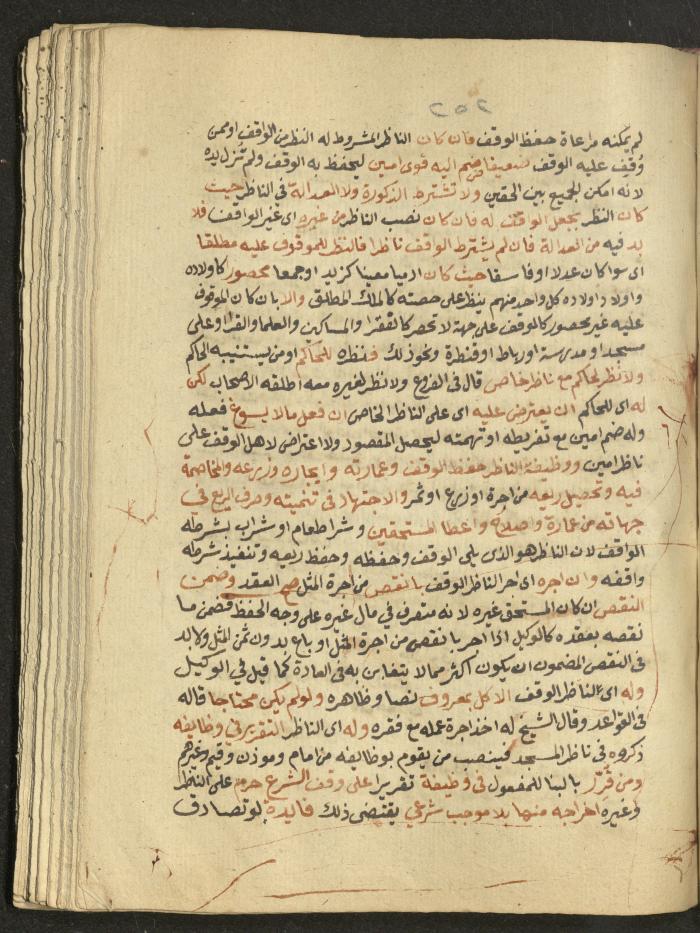 ٢٥٢
لم يمكنه مراعاة حفظ الوقف فان كان الناظر المشروط له النظر من الواقف او ممن
وُقِف عليه الوقف ضعيفا ضم اليه قوى امين ليحفظ به الوقف ولم تُزل يده
لانه امكن الجميع بين الحقين ولا تشترط الذكورة ولا العدالة في الناظر حيث
كان النظر بجعل الوقف له فان كان نصب الناظر من غيره اى غير الواقف فلا
بد فيه من العدالة فان لم يشترط الواقف ناظرا فالنظر للموقوف عليه مطلقا
اى سوا كان عدلا او فاسقا حيث كان ادميا معينا كزيد او جمعا محصورا كاولاده
واولاد اولاده كل واحد منهم ينظر على حصته كالملك المطلق والا بان كان الموقوف
عليه غير محصور كالوقف على جهة لا تحصر كالفقرا والمساكين والعلما والقرا وعلى
مسجد او مدرسة او رباط او قنطرة ونحو ذلك فنظره للحاكم او من يستنيبه الحاكم
ولا نظر لحاكم مع ناظر خاص قال في الفروع ولا نظر لغيره معه اطلقه الاصحاب لكن
له اى للحاكم ان يعترض عليه اى على الناظر الخاص ان فعل مالا يسوغ فعله
وله ضم امين مع تفريطه او تهمته ليحصل المقصود ولا اعتراض لاهل الوقف على
ناظر امين ووظيفة الناظر حفظ الوقف وعمارته وايجاره وزرعه والمخاصمة
فيه وتحصيل ريعه من اجرة او زرع او ثمر والاجتهاد في تنميته وصرف الريع في
جهاته من عمارة واصلاح واعطا المستحقين وشرا طعام او شراب بشرطه
الواقف لان الناظر هو الذى يلى الوقف وحفظه وحفظ ريعه وتنفيذ شرطه
واقفه وان اجره اى اجر الناظر الوقف بانقص من اجرة المثل صح العقد وضمن
النقص ان كان المستحق غيره لانه متصرف في مال غيره على وجه الحفظ فضمن ما
نقصه بعقده كالوكيل اذا اجر بانقص من اجرة المثل او باع بدون ثمن المثل ولا بد
في النقص المضمون ان يكون اكثر مما لا يتغابن به في العادة كما قيل في الوكيل
وله اى الناظر الوقف الاكل بمعروف نصا وظاهره ولو لم يكن محتاجا قاله
في القواعد وقال الشيخ له اخذ اجرة عمله مع فقره وله اى الناظر التقرير في وظايفه
ذكروه في ناظر المسجد فينصب من يقوم بوظايفه من امام وموذن وقيم وغيرهم
ومن قُرِّر بالبنا للمفعول في وظيفة تقريرا على وفق الشرع حرم على الناظر
وغيره اخراجه منها بلا موجب شرعي يقتضى ذلك فايدة لو تصادق